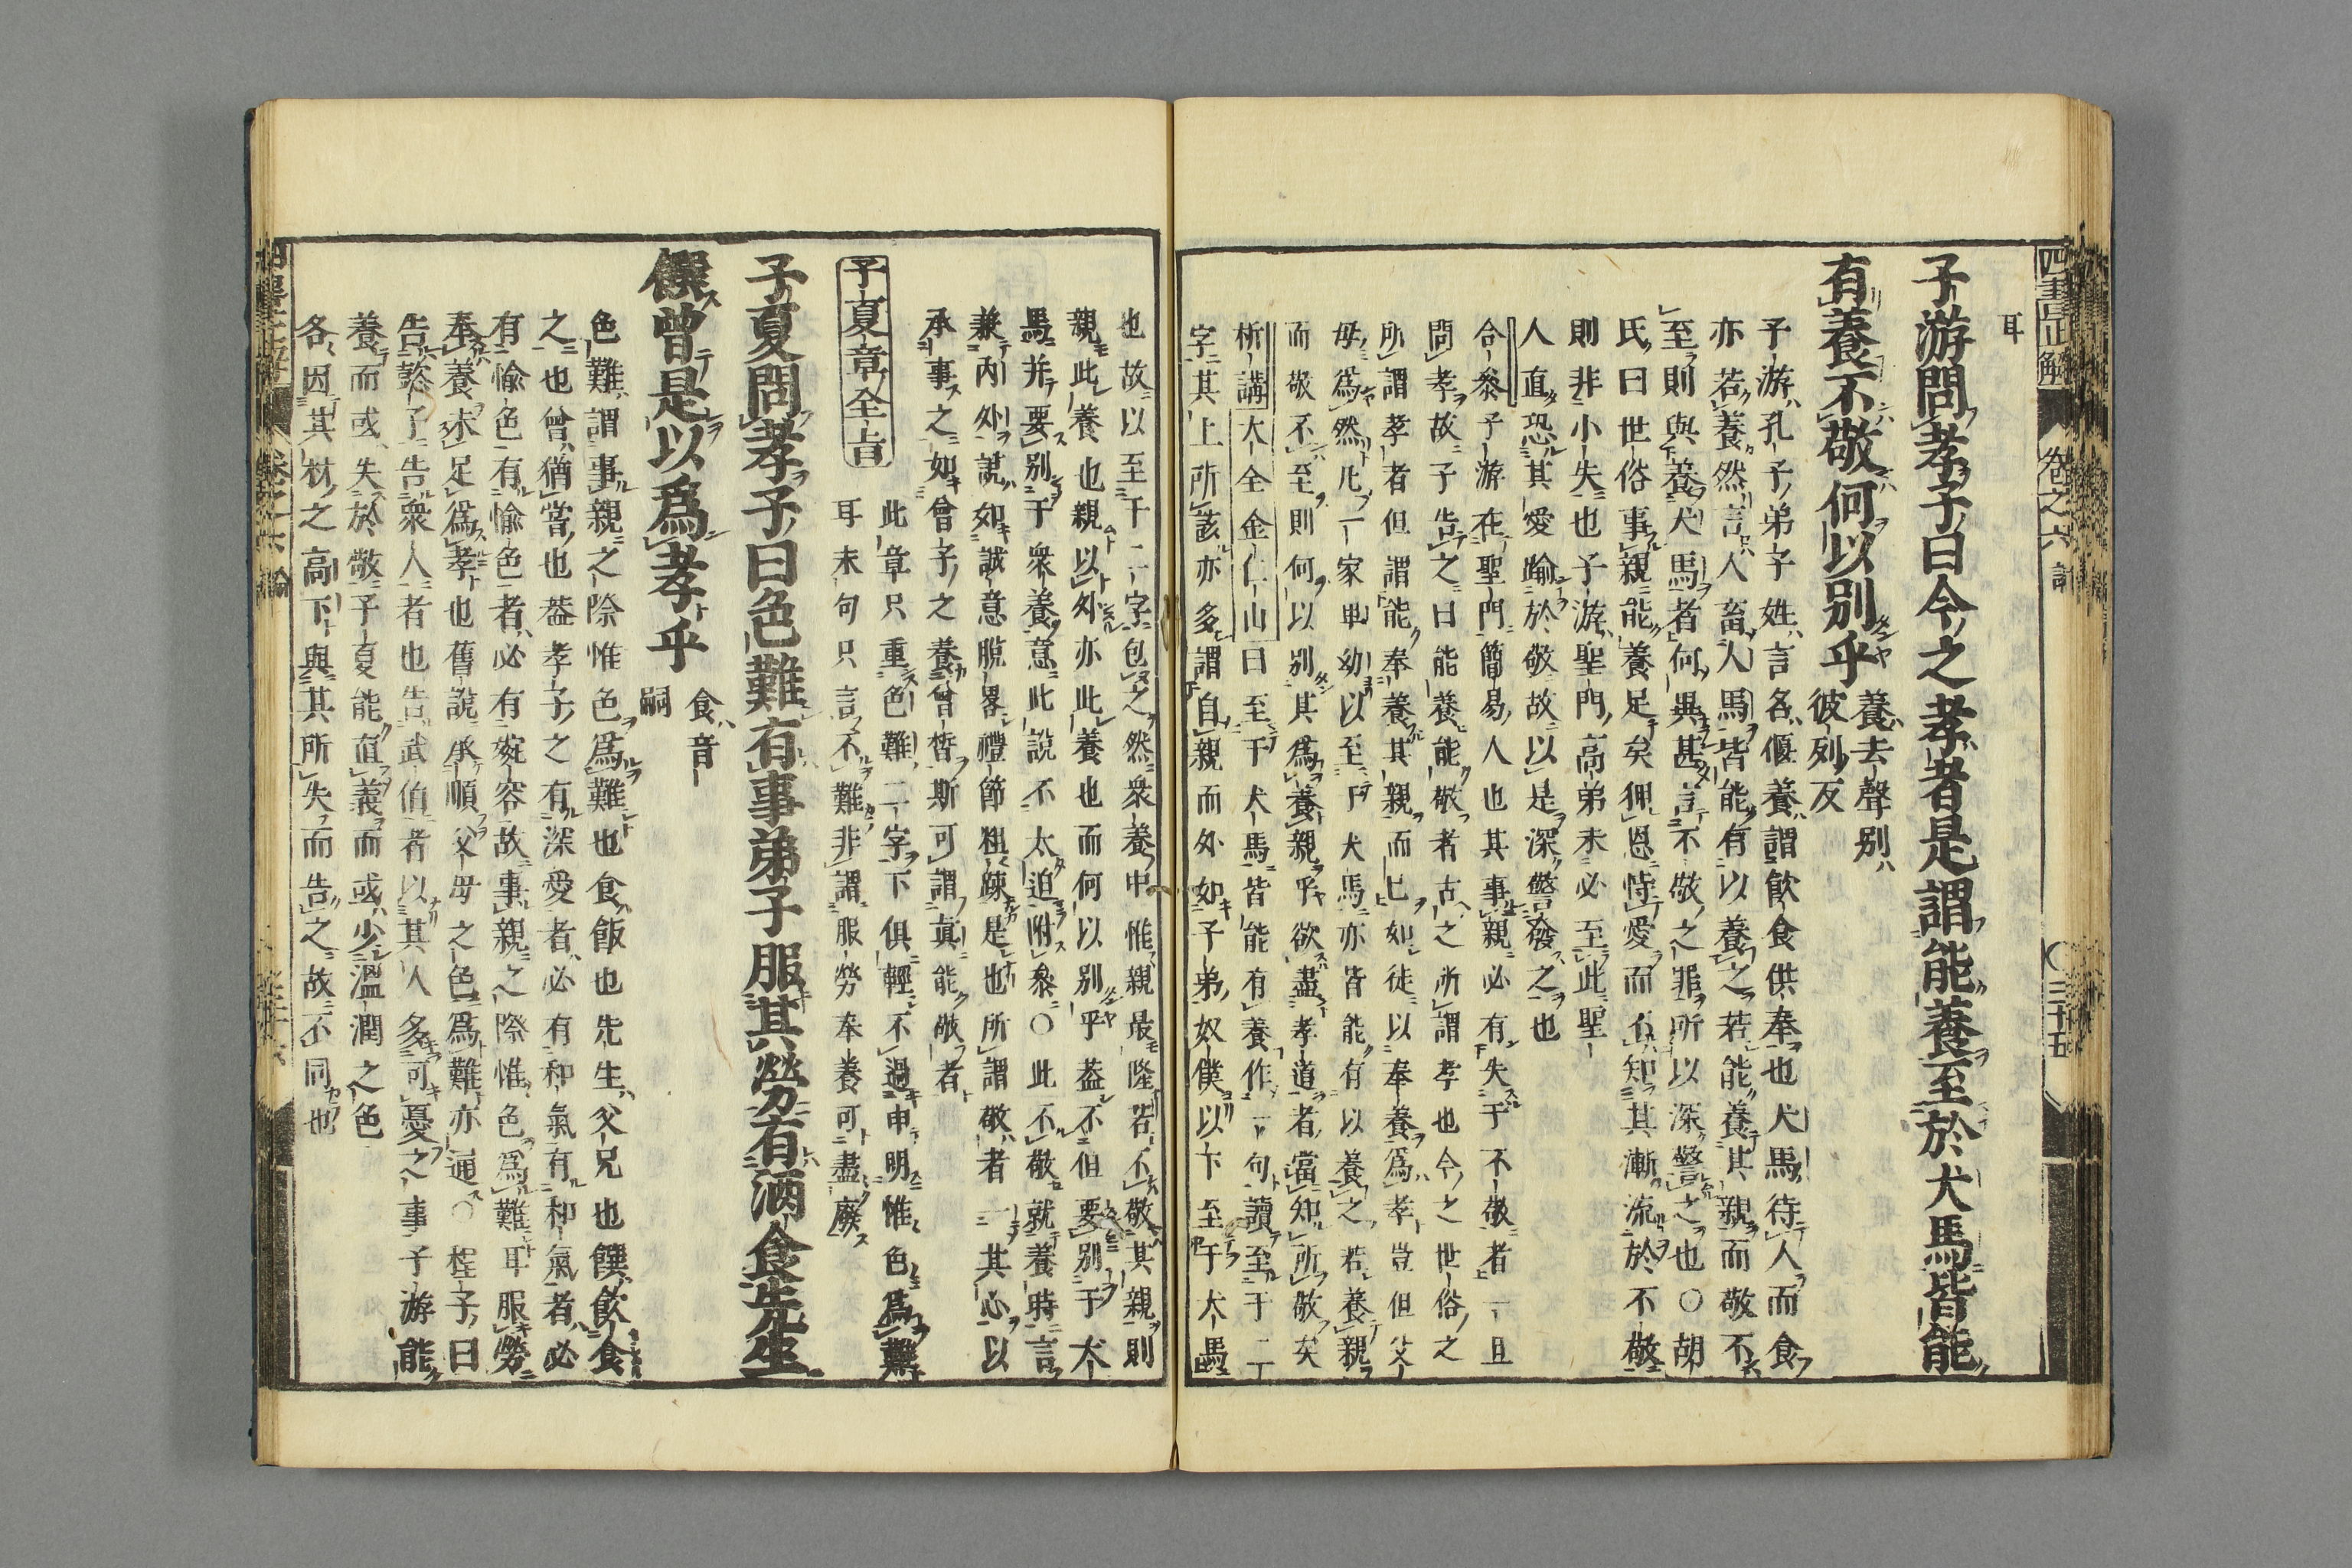 四書正解 卷之六 三十五
耳
子游問孝子曰今之孝者是謂能養至於犬馬皆能
有養不敬何以別乎
養去聲別
彼列反
子游孔子弟子姓言名偃養謂飲食供奉也犬馬待人而食
亦若養然言人畜犬馬皆能有以養之若能養其親而敬不
至則與養犬馬者何異甚言不敬之罪所以深警之也○胡
氏曰世俗事親能養足矣狎恩恃愛而不知其漸流於不敬
則非小失也子游聖門高弟未必至此聖
人直恐其愛踰於敬故以是深警發之也
合參子游在聖門簡易人也其事親必有失于不敬者一旦
問孝故子告之曰能養能敬者古之所謂孝也今之世俗之
所謂孝者但謂能奉養其親而已如徒以奉養爲孝豈但父
母爲然凡一家卑幼以至于犬馬亦皆能有以養之若養親
而敬不至則何以別其爲養親乎欲盡孝道者當知所敬矣
析講大全金仁山曰至于犬馬皆能有養作一句讀至于二
字其上所該亦多謂自親而外如子弟奴僕以下至于犬馬
也故以至于二字包之然衆養中惟親最隆若不敬其親則
親此養也親以外亦此養也而何以別乎葢不但要別于犬
馬并要別于衆養意此說不太迫附參○此不敬就養時言
兼內外說如誠意脫畧禮節粗疎是也所謂敬者一其心以
承事之如曾子之養曾晳斯可謂眞能敬者
子夏章全旨
此章只重色難二字下俱輕不過申明惟色爲難
耳末句只言不難非謂服勞奉養可盡廢
子夏問孝子曰色難有事弟子服其勞有酒食先生
饌曾是以爲孝乎
食音
嗣
色難謂事親之際惟色爲難也食飯也先生父兄也饌飲食
之也曾猶嘗也葢孝子之有深愛者必有和氣有和氣者必
有愉色有愉色者必有婉容故事親之際惟色爲難耳服勞
奉養未足爲孝也舊說承順父母之色爲難亦通○程子曰
告懿子告衆人者也告武伯者以其人多可憂之事子游能
養而或失於敬子夏能直義而或少溫潤之色
各因其材之高下與其所失而告之故不同也